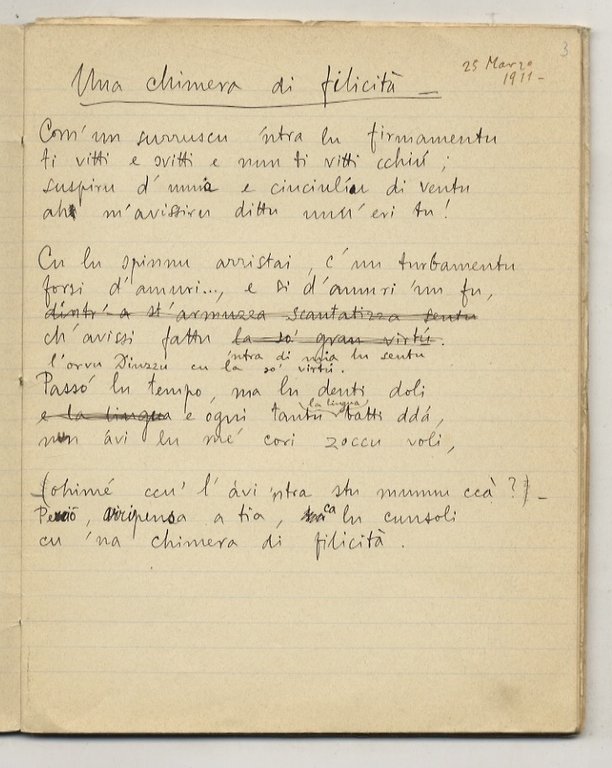 3
25 Marzo
1911 -
Una chimera di filicità -
Com' un surruscu 'ntra lu firmamentu
ti vitti e svitti e nun ti vitti cchiú ;
suspiru d' unnia e ciuciulíu di ventu
ah! m'avissiru dittu unn' eri tu !
Cu lu spinnu arristai , c' un turbamentu
forsi d'amuri..., e si d'amuri 'un fu,
dintr' a st' armuzza scantatizza sentu
ch'avissi fattu la so' gran virtú .
'ntra di mia lu sentu
l'orvu Diuzzu cu la so' virtú .
Passó lu tempo, ma lu denti doli
la lingua,
e la lingua e ogni tantu batti ddá,
nun ávi lu mé cori zoccu voli ,
(ohimé ccu' l' ávi 'ntra stu munnu ccà ? ) -
Perció , ripensa a tia , ca lu cunsoli
cu 'na chimera di filicità .